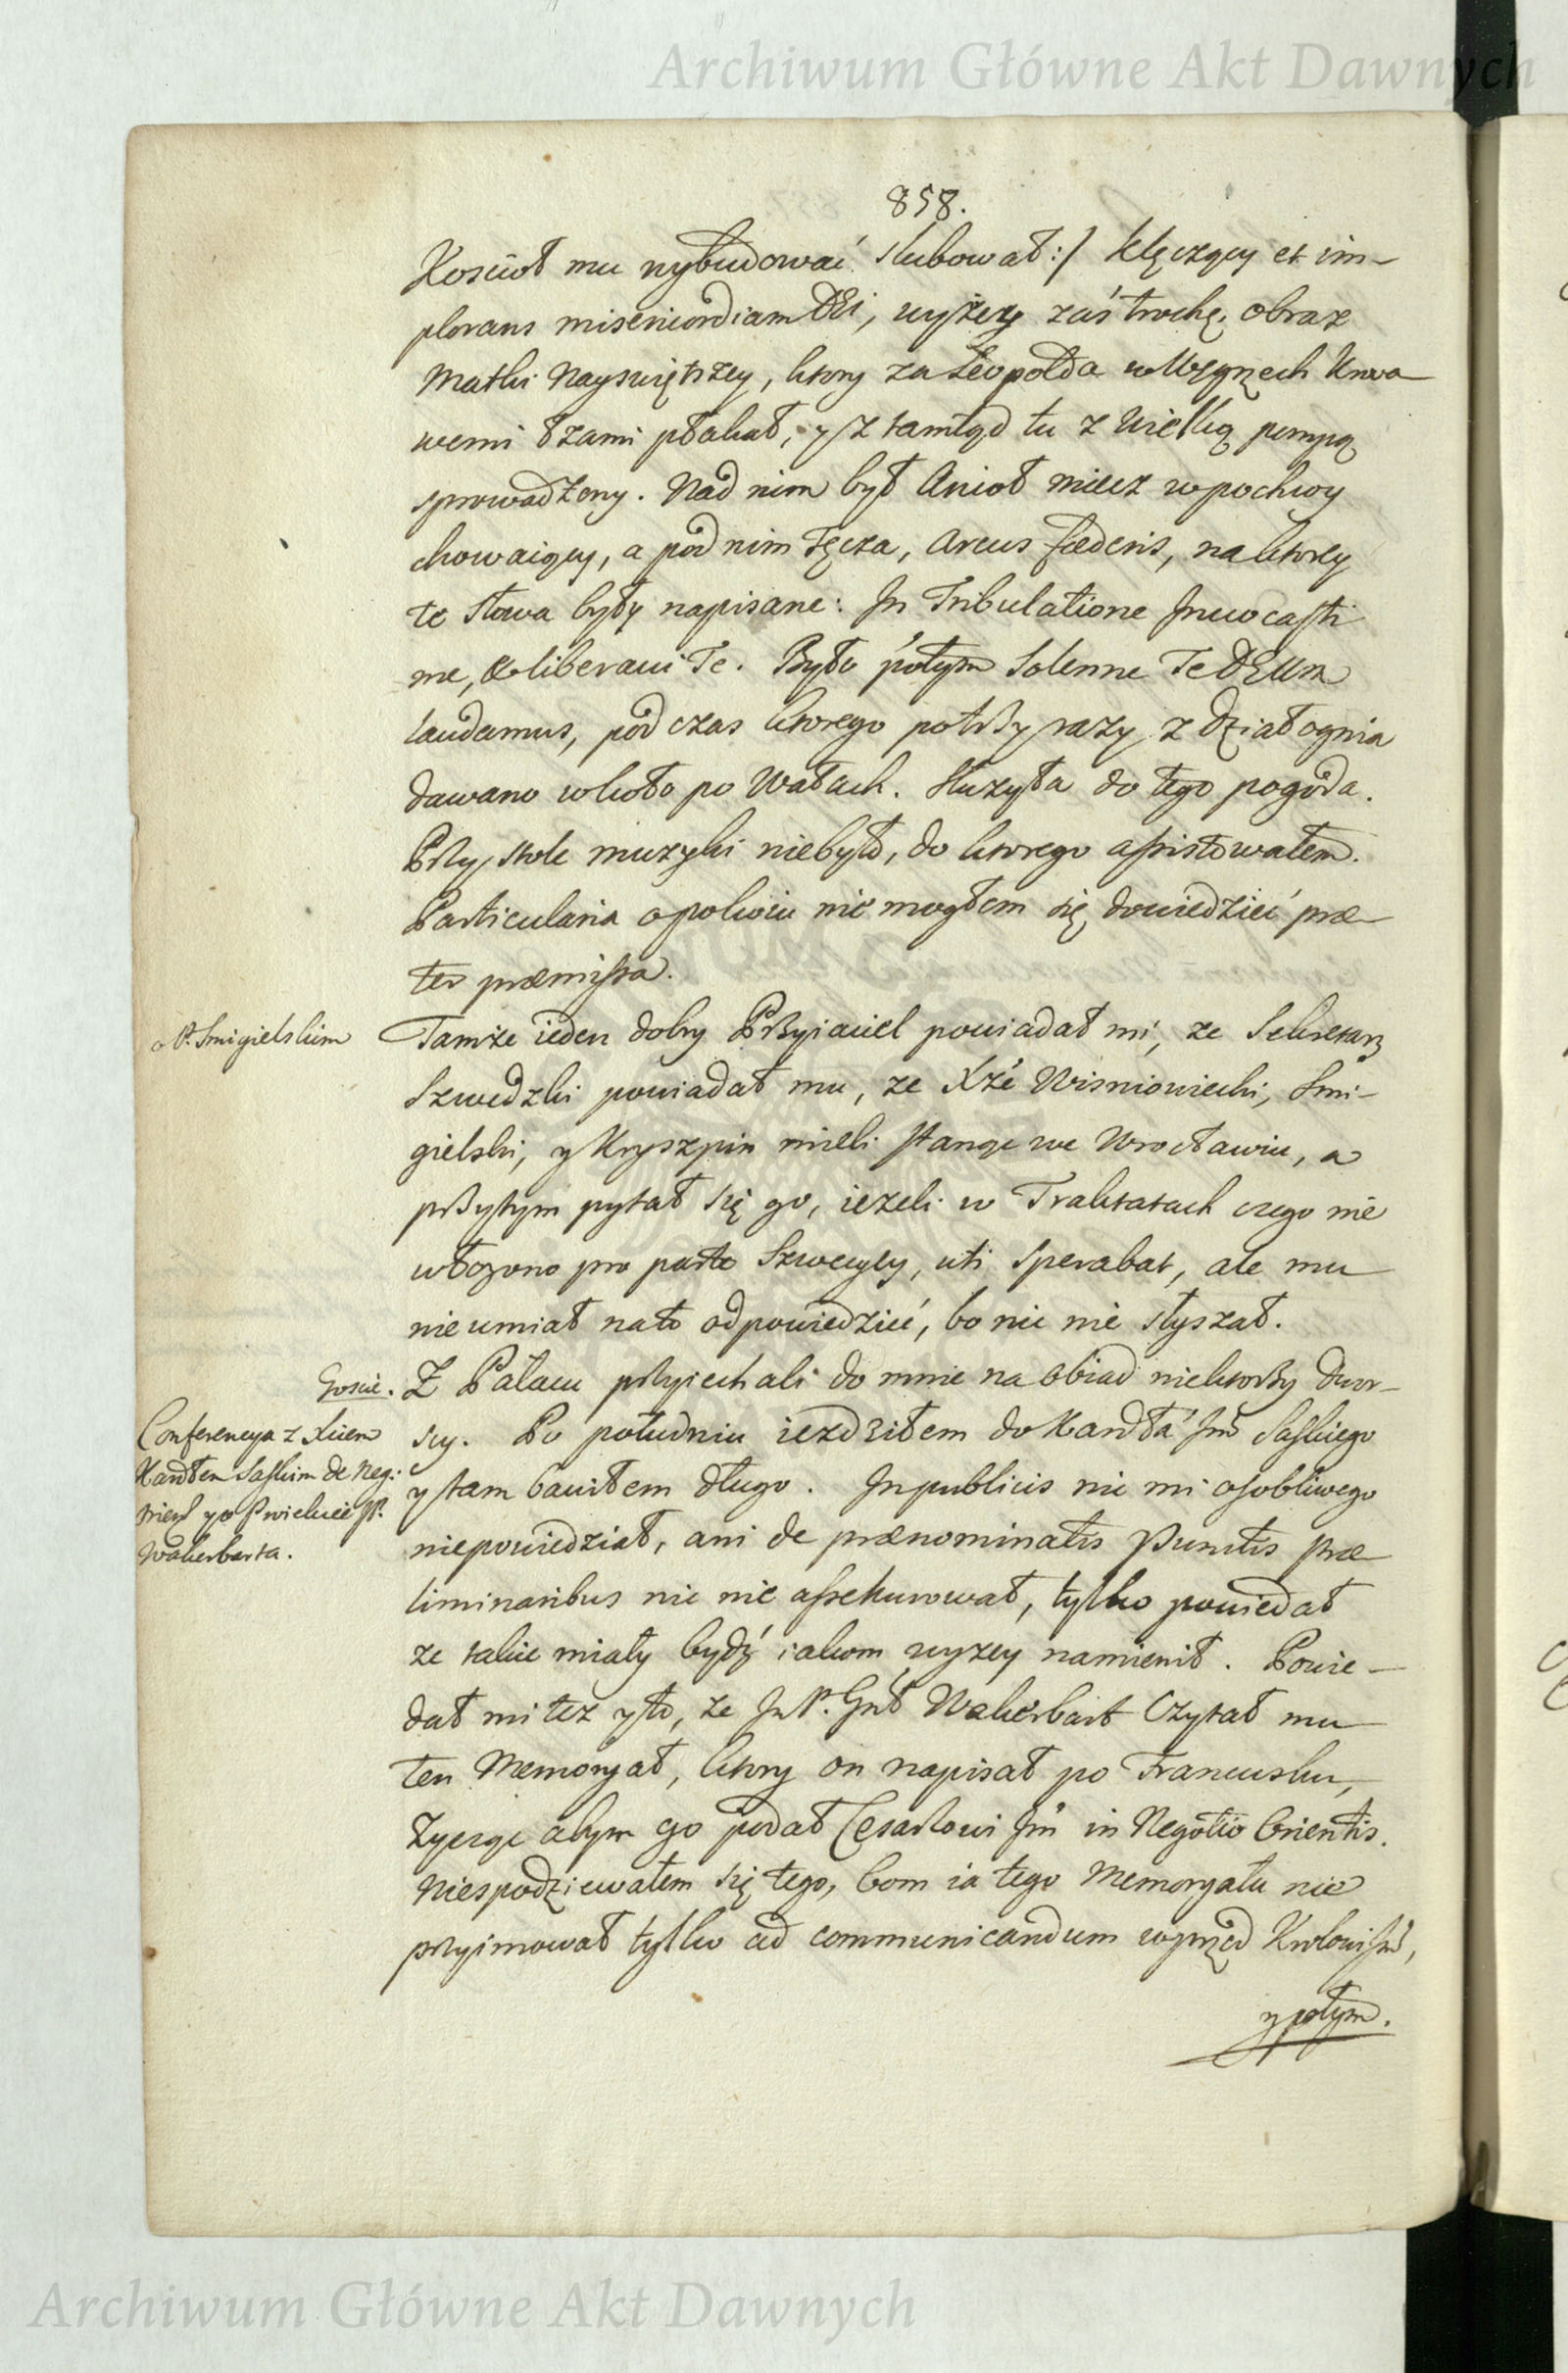 Archiwum Główne Akt Dawnych
858.
Koscioł mu wybudować slubował:/ klęczący et im-
plorans misericordiam DEi, wyżey zaś trochę, obraz
Matki Nayswiętszey, ktory za Leopolda w Węgrzech krwa-
wemi łzami płakał, y z tamtąd tu z wielką pompą
sprowadzony. Nad nim był Anioł miecz w pochwy
chowaiący, a pod nim Tęcza, Arcus fœderis, na ktorey
te słowa były napisane: In Tribulatione Invocasti
me, & liberavi Te. Było potym Solenne Te DEUm
laudamus, pod czas ktorego po trzy razy z dział ognia
dawano w koło po Wałach. Służyła do tego pogoda.
Przy stole muzyki nie było, do ktorego assistowałem.
Particularia o pokoiu nie mogłem się dowiedzieć præ-
ter præmissa.
o P. Smigielskim
Tamże ieden dobry Przyiaciel powiadał mi, ze Sekretarz
Szwedzki powiadał mu, ze Xże Wisniowiecki, Smi-
gielski, y Kryszpin mieli stanąc we Wrocławiu, a
przytym pytał się go, ieżeli w Traktatach czego nie
włozono pro parte Szwecyey, uti sperabat, ale mu
nie umiał na to odpowiedzieć, bo nic nie słyszał.
Goscie.
Z Pałacu przyiechali do mnie na obiad niektorzy Dwor-
scy. Po południu iezdziłem do Kardła Jm Saskiego
y tam bawiłem długo. In publicis nic mi osobliwego
Conferencya z Xiem
Kardłem Saskim de Neg:
Wakerbarta.
nie powiedział, ani de prænominatis Punctis præ-
liminaribus nic nie assekurował, tylko powiedał
ze takie miały bydź iakom wyzey namienił. Powie-
dał mi tez y to, ze Jm P. Gnł Wakerbart Czytał mu
ten Memoryał, ktory on napisał po Francusku,
Zycząc abym go podał Cesarzowi Jm in Negotio Orientis.
Niespodziewałem się tego, bom ia tego Memoryału nie
przyimował tylko ad communicandum wprzod Krolowi Jm,
y potym.
Archiwum Główne Akt Dawnych